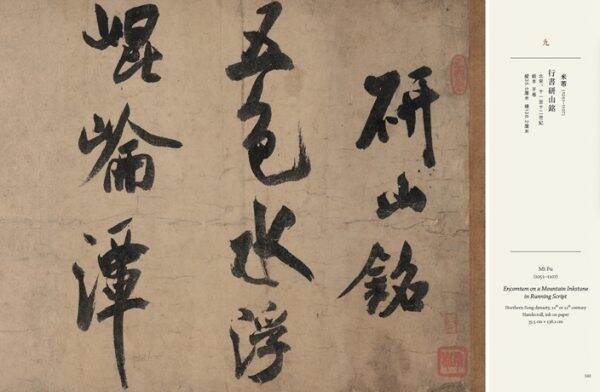 研山銘
五色水浮
崐崘潭
九
米芾 (1051–1107)
行書研山銘
北宋，十一至十二世紀
紙本 手卷
縱35.5厘米 橫138.2厘米
Mi Fu
(1051–1107)
Encomium on a Mountain Inkstone
in Running Script
Northern Song dynasty, 11th or 12th century
Handscroll, ink on paper
35.5 cm × 138.2 cm